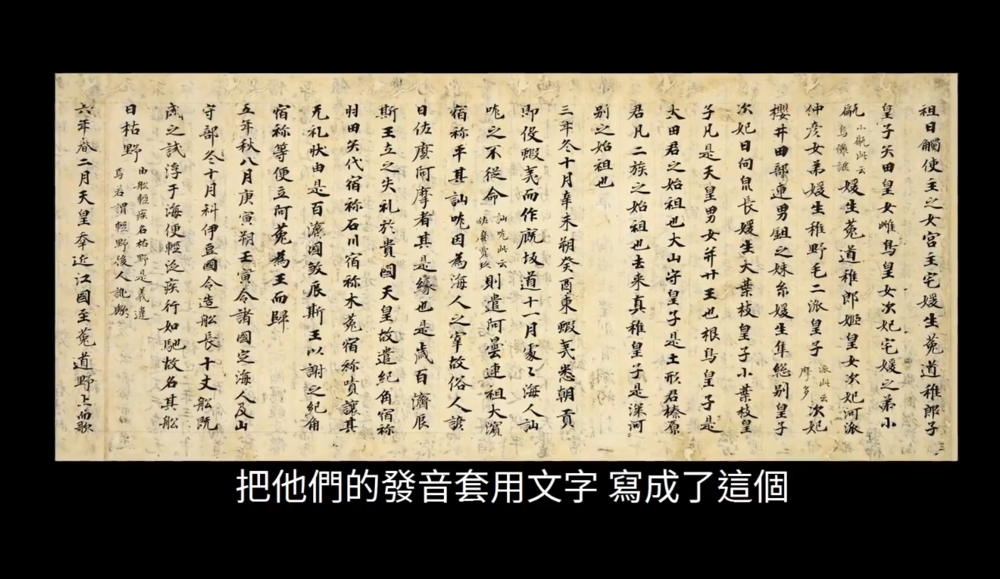 祖日觸使主之女宮主宅媛生菟道稚郎子
皇子矢田皇女雌鳥皇女次妃宅媛之弟小
甂小甂此云烏儺謎媛生菟道稚郎姫皇女次妃河派
仲彦女弟媛生稚野毛二派皇子派此云摩多次妃
櫻井田部連男鉏之妹糸媛生隼総別皇子
次妃日向泉長媛生大葉枝皇子小葉枝皇
子凡是天皇男女并廿王也根鳥皇子是
大田君之始祖也大山守皇子是土形君榛原
君凡二族之始祖也去来真稚皇子是深河
別之始祖也
三年冬十月辛未朔癸酉東蝦夷悉朝貢
即役蝦夷而作厩坂道十一月處〻海人訕
哤之不從命訕哤此云佐麼賣玖則遣阿曇連祖大濱
宿祢平其訕哤因為海人之宰故俗人諺
曰佐麼阿摩者其是縁也是歳百濟辰
斯王立之失礼於貴國天皇故遣紀角宿祢
羽田矢代宿祢石川宿祢木菟宿祢嘖讓其
无礼状由是百濟國敓辰斯王以謝之紀角
宿祢等便立阿菟為王而歸
五年秋八月庚寅朔壬寅令諸國定海人及山
守部冬十月科伊豆國令造舩長十丈舩既
成之試浮于海便輕泛疾行如馳故名其舩
曰枯野由舩輕疾名枯野是義違焉若謂輕野後人訛歟
六年春二月天皇幸近江國至菟道野上而歌
把他們的發音套用文字 寫成了這個